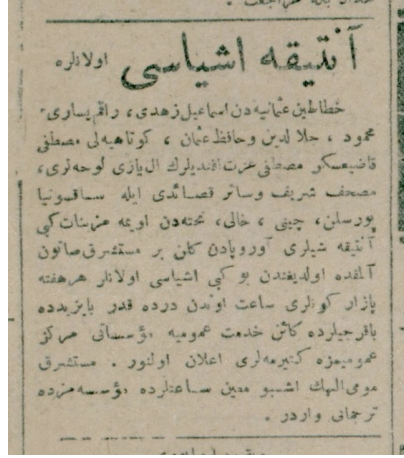 آنتیقه اشیاسی اولانلره
خطاطین عثمانیه‌دن اسماعیل زهدی، راقم یساری،
محمود ، جلال‌الدین وحافظ عثمان ، کوتاهیه‌لی مصطفی
قاضیعسکر مصطفی عزت افندیلرك ال یازی لوحه‌لری،
مصحف شریف وسائر قصائدی ایله ساقسونیا
پورسلن، چینی ، خالی، تخته‌دن اویمه مزینات کبی
آنتیقه شیلری آوروپادن کلن بر مستشرق صاتون
آلمقده اولدیغندن بو کبی اشیاسی اولانلر هر هفته
پازار کونلری ساعت اوندن درده قدر بایزیدده
باقرجیلرده کائن خدمت عمومیه مؤسساتی مرکز
عمومیمزه کتیرمه‌لری اعلان اولنور . مستشرق
مومی‌الیهك اشبو معین ساعتلرده مؤسسه‌مزده
ترجمانی واردر .